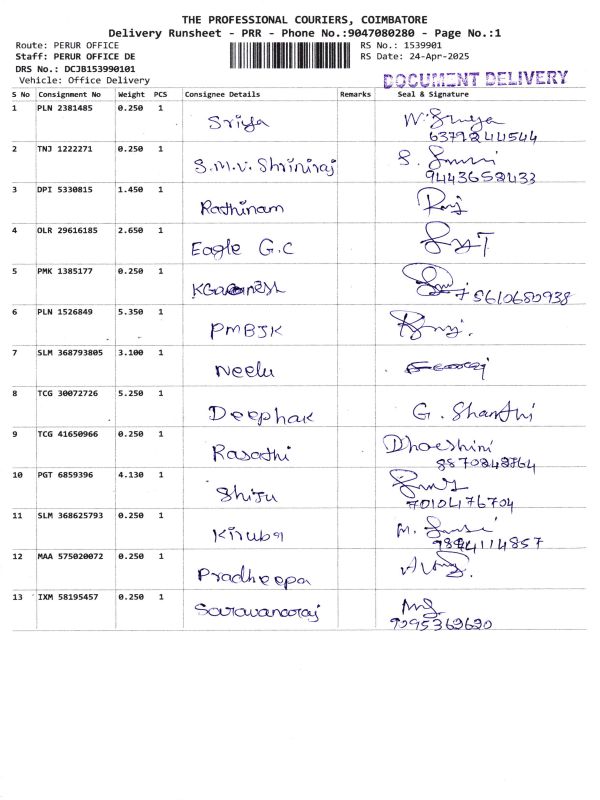 THE PROFESSIONAL COURIERS, COIMBATORE
Delivery Runsheet - PRR - Phone No.:9047080280 - Page No.:1
Route: PERUR OFFICE RS No.: 1539901
Staff: PERUR OFFICE DE RS Date: 24-Apr-2025
DRS No.: DCJB153990101
Vehicle: Office Delivery DOCUMENT DELIVERY
S No Consignment No Weight PCS Consignee Details Remarks Seal & Signature
1 PLN 2381485 0.250 1 Sriya
6379244544
2 TNJ 1222271 0.250 1 S.M.V. Shriniraj
9443652433
3 DPI 5330815 1.450 1 Rathinam Raj
4 OLR 29616185 2.650 1 Eagle G.C
5 PMK 1385177 0.250 1
6 PLN 1526849 5.350 1 PMBJK
7 SLM 368793805 3.100 1 Neelu
8 TCG 30072726 5.250 1 Deephak G. Shanthi
9 TCG 41650966 0.250 1 Rasathi Dhoeshini
10 PGT 6859396 4.130 1 Shiju
7010476704
11 SLM 368625793 0.250 1 Kiruba
9894114857
12 MAA 575020072 0.250 1 Pradheepa
13 IXM 58195457 0.250 1 Saravanaraj